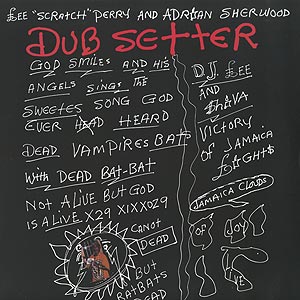 £EE "SCRATCH" PERRY AND ADRIAN SHERWOOD
DUB SETTER
GOD SMILES AND HIS
ANGELS SINGS THE
SWEETES SONG GOD
EVER HEARD
DEAD VAMPIRES BATS
WITH DEAD BAT-BAT
NOT ALIVE BUT GOD
IS ALIVE X29 XIXX029
CANOT
DEAD
BUT
RATBATS
DEAD
D.J. £EE
AND
SHAVA
VICTORY
OF JAMAICA
JAMAICA CLOUDS
OF JOY